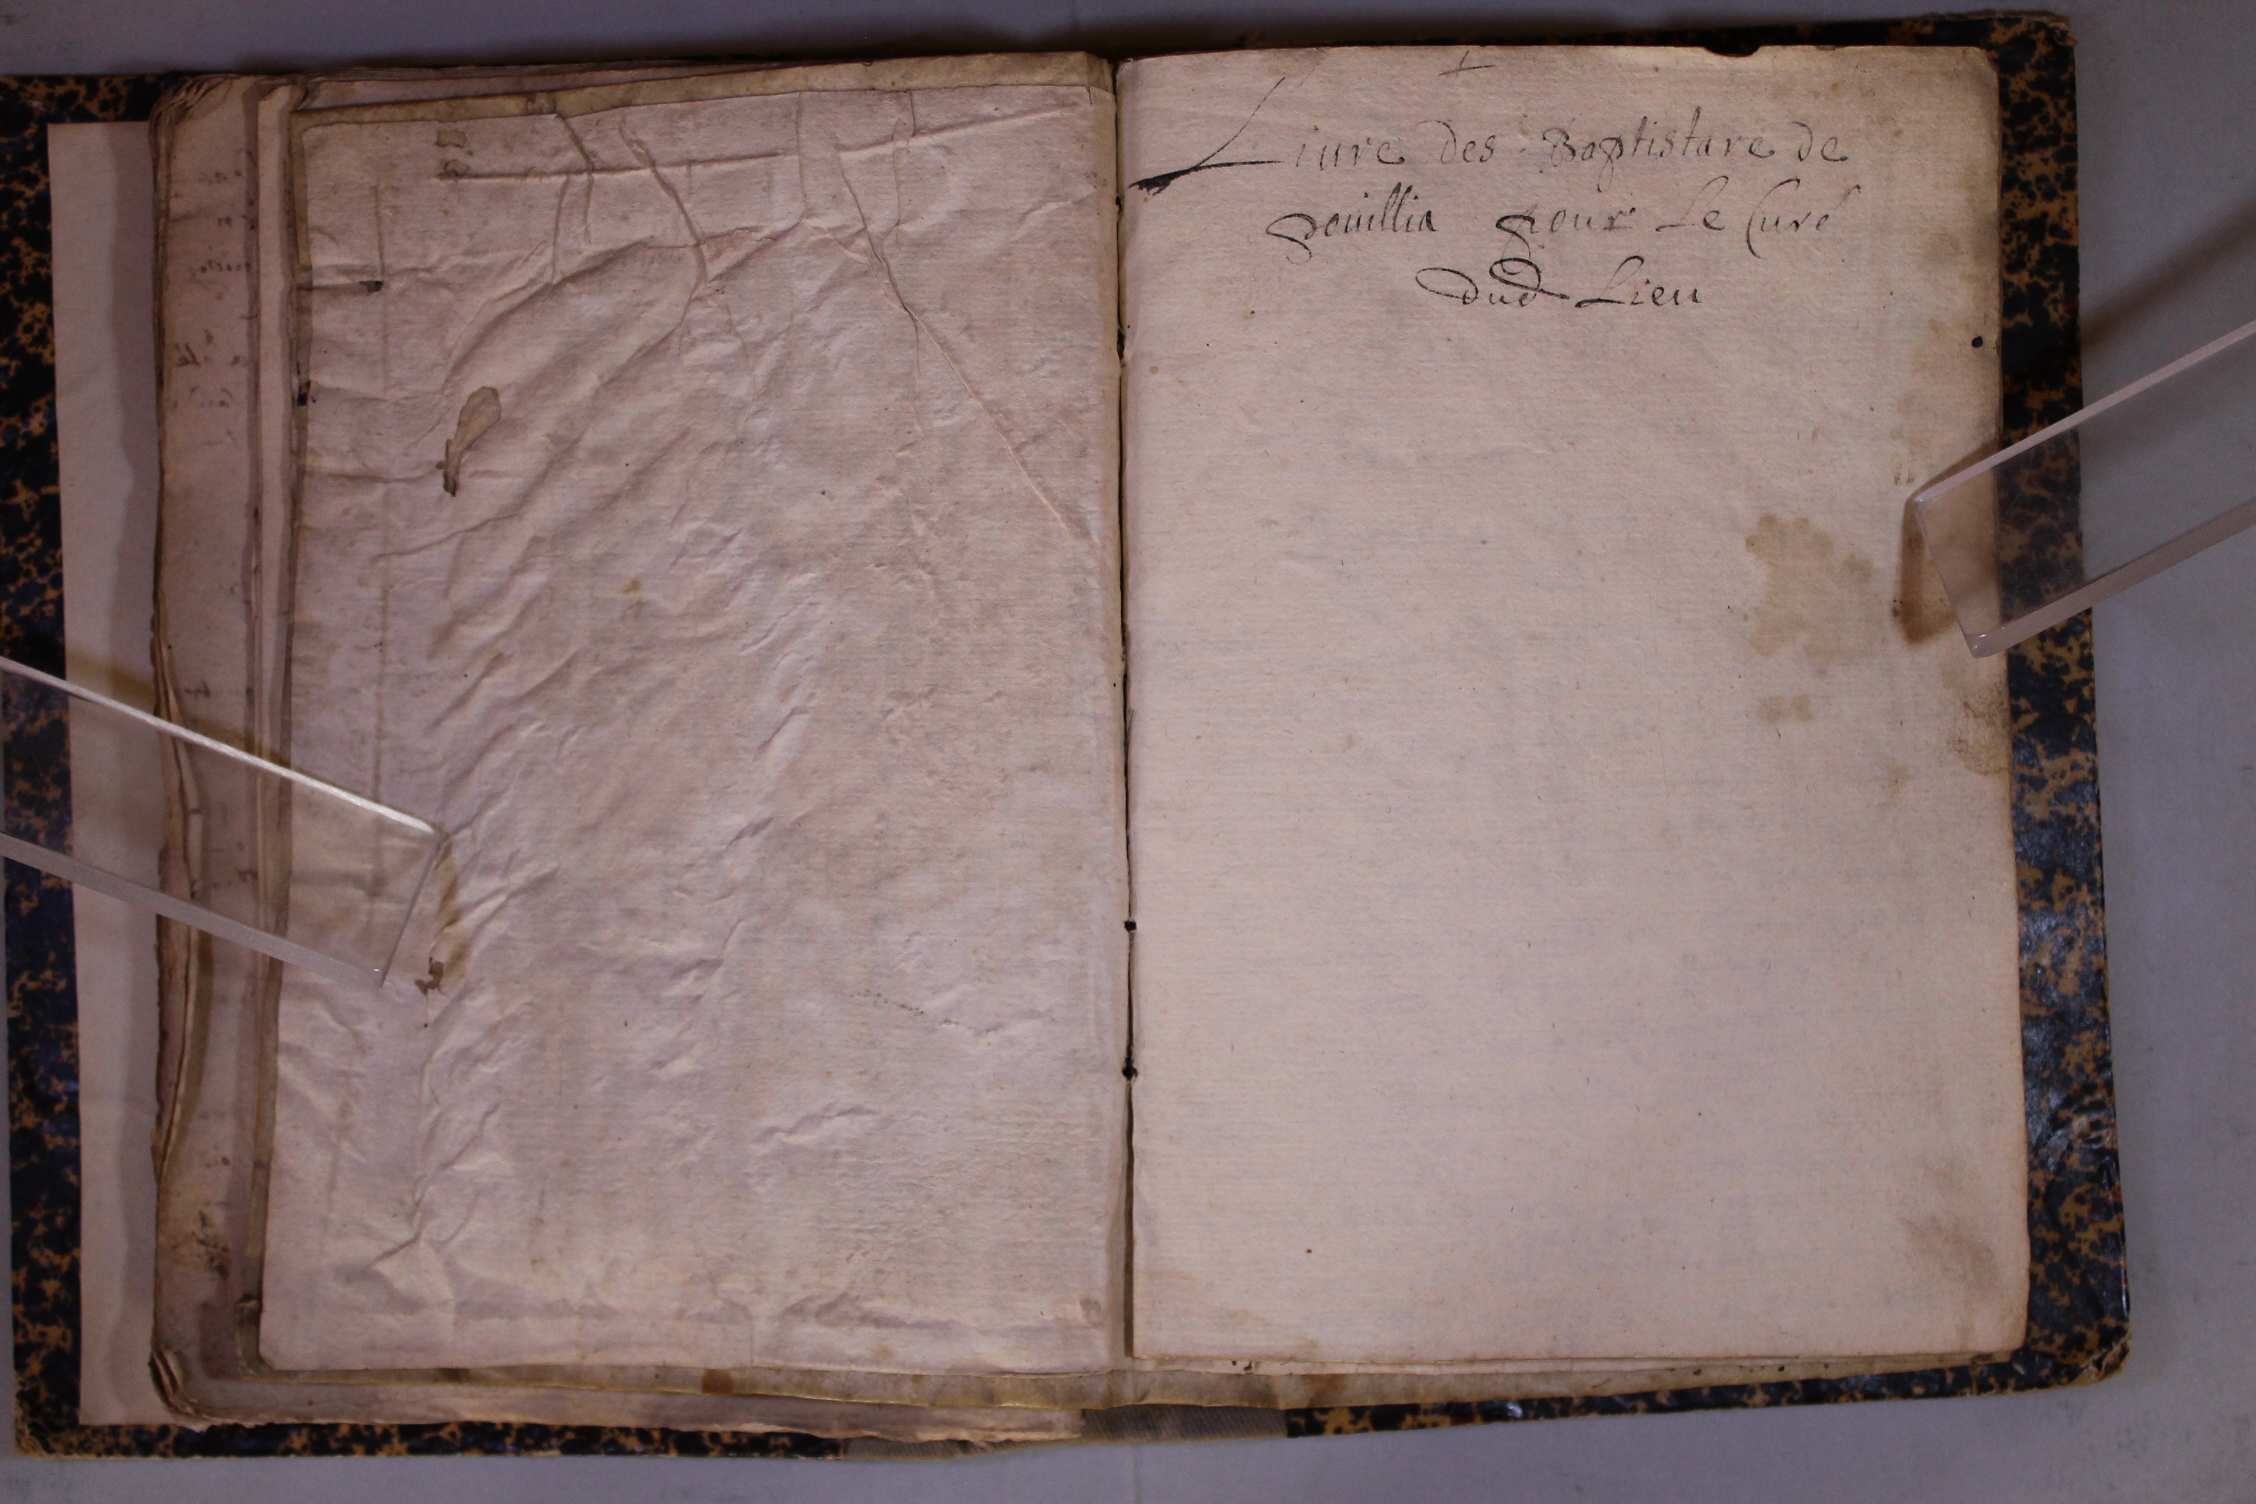 +
Liure des Baptistare de
pouillia pour Le Curé
dud Lieu